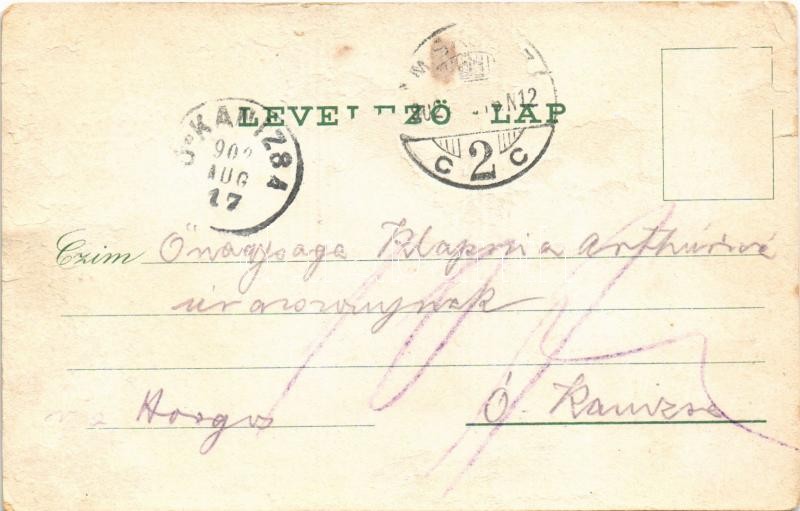 LEVELEZŐ LAP
Ó-KANIZSA
902
AUG
17
N12
C 2 C
Czim Őnagysaga Klapria Arthúrné
úrasszonynak
via Horgos Ó. Kanizsa